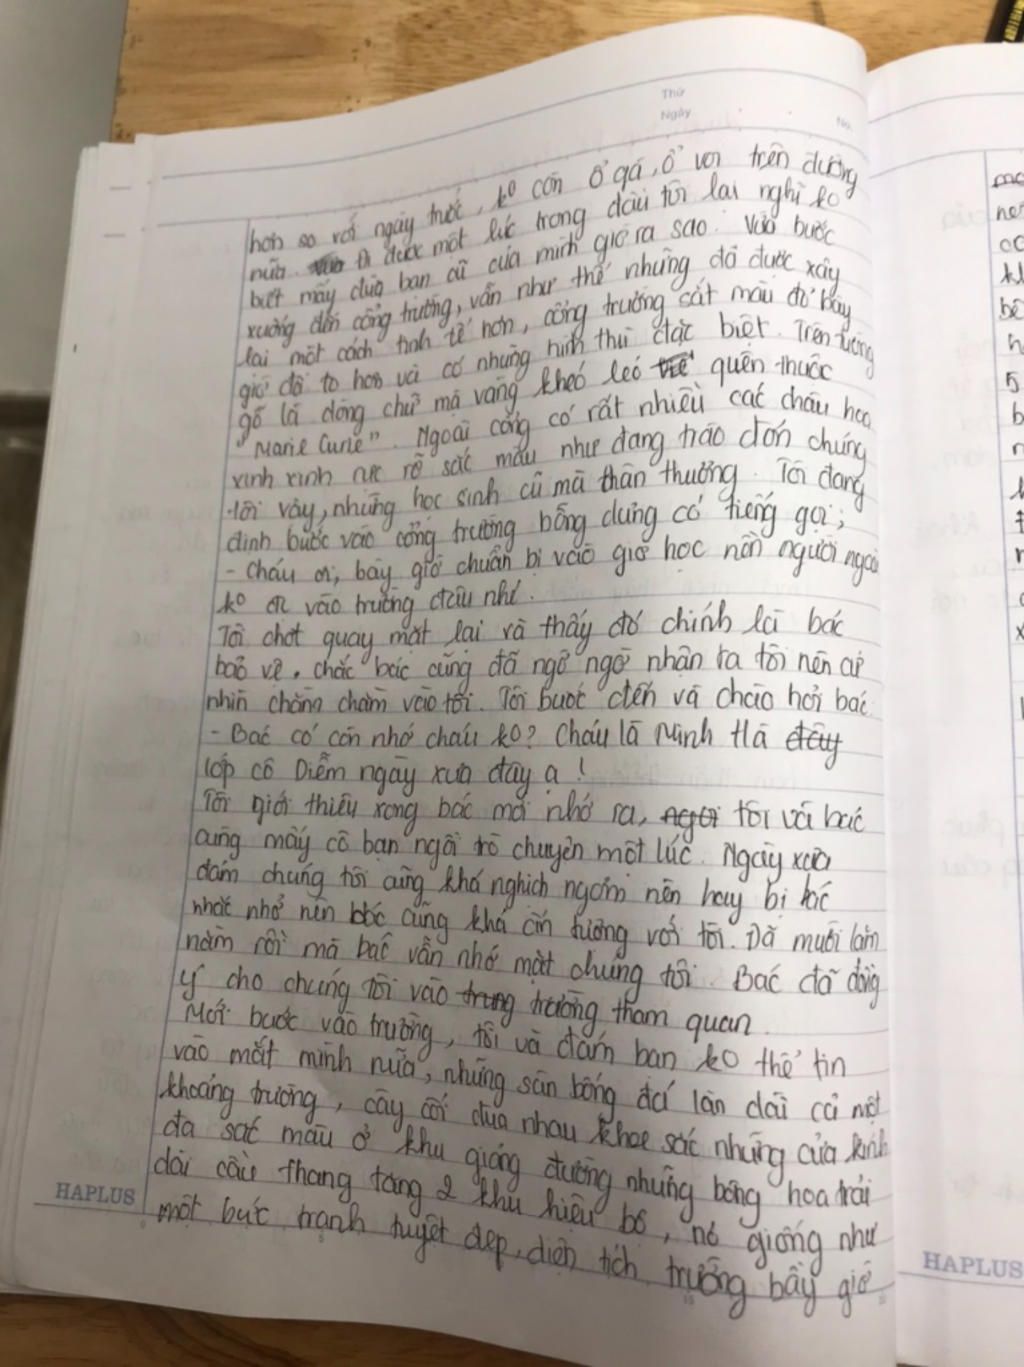 Thứ
Ngày
No.
hơn so với ngày trước, ko còn ổ gà, ổ voi trên đường
nữa. Đi được một lúc trong đầu tôi lại nghĩ ko
biết mấy đứa bạn cũ của mình giờ ra sao. Vừa bước
xuống đến cổng trường, vẫn như thế nhưng đã được xây
lại một cách tinh tế hơn, cổng trường sắt màu đỏ bây
giờ đã to hơn và có những hình thù đặc biệt. Trên tường
gỗ là dòng chữ mạ vàng khéo léo quen thuộc
"Marie Curie". Ngoài cổng có rất nhiều các chậu hoa
xinh xinh rực rỡ sắc màu như đang trào đón chúng
tôi vậy, những học sinh cũ mà thân thương. Tôi đang
định bước vào cổng trường bỗng dưng có tiếng gọi;
- Cháu ơi, bây giờ chuẩn bị vào giờ học nên người ngoài
ko đc vào trường đâu nhé.
Tôi chợt quay mặt lại và thấy đó chính là bác
bảo vệ, chắc bác cũng đã ngờ ngợ nhận ra tôi nên cứ
nhìn chằm chằm vào tôi. Tôi bước đến và chào hỏi bác.
- Bác có còn nhớ cháu ko? Cháu là Minh Hà đây
lớp cô Diễm ngày xưa đây ạ!
Tôi giới thiệu xong bác mới nhớ ra, tôi và bác
cùng mấy cô bạn ngồi trò chuyện một lúc. Ngày xưa
đám chúng tôi cũng khá nghịch ngợm nên hay bị bác
nhắc nhở nên bác cũng khá ấn tượng với tôi. Đã mười lăm
năm rồi mà bác vẫn nhớ mặt chúng tôi. Bác đã đồng
ý cho chúng tôi vào trường thăm quan.
Mới bước vào trường, tôi và đám bạn ko thể tin
vào mắt mình nữa, những sân bóng đá lăn dài cả một
khoảng trường, cây cối đua nhau khoe sắc những cửa kính
đa sắc màu ở khu giảng đường những bông hoa trải
dài cầu thang tầng 2 khu hiệu bộ, nó giống như
một bức tranh tuyệt đẹp, diện tích trường bây giờ
HAPLUS
HAPLUS